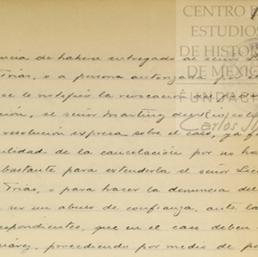 CENTRO DE
ESTUDIOS
DE HISTORIA
DE MÉXICO
FUNDACIÓN
Carlos Slim
ncia de haberse entregado al señor
Frias, o a persona autorizada
se le notificó la revocación
ción, el señor Martinez del Rio,
resolución expresa sobre el caso, ya
bilidad de la cancelación por no ha
bastante para extenderla el señor Lic
Frias, o para hacer la denuncia del
ser un abuso de confianza, ante la
spondientes, que en el caso deben
Juárez, procediendo por medio de po